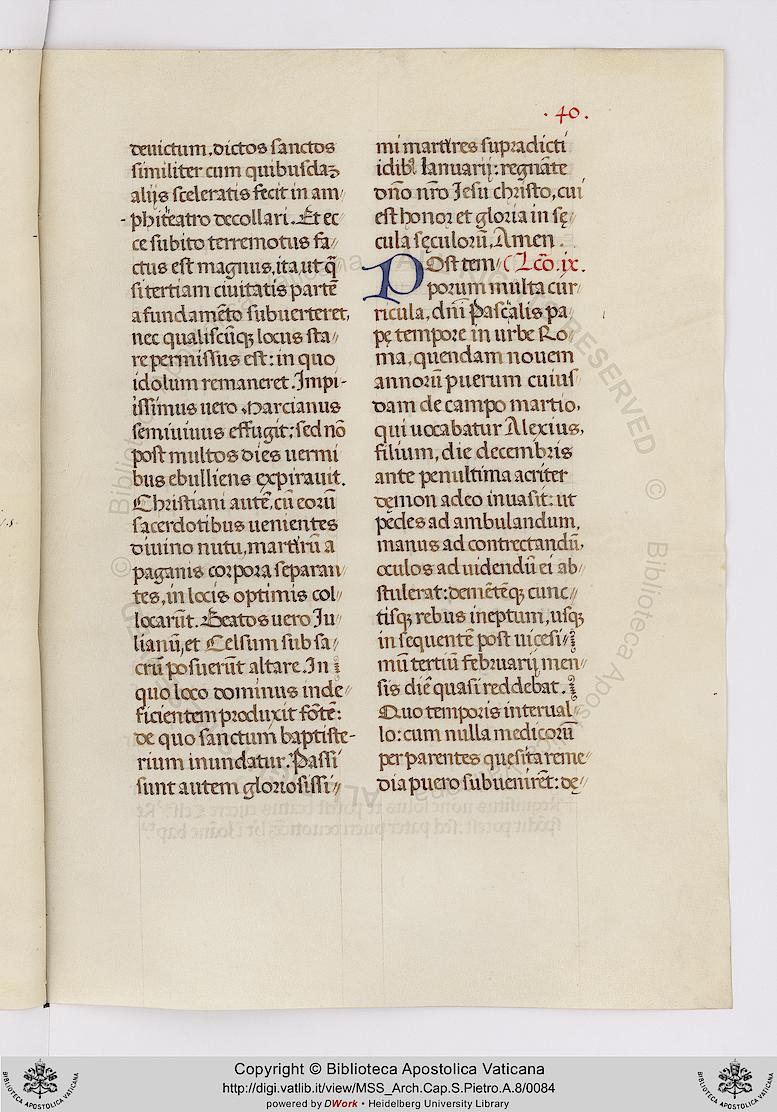 · 40 ·
deuictum, dictos sanctos
similiter cum quibusdaʒ
alijs sceleratis fecit in am⸗
phiteatro decollari. Et ec⸗
ce subito terremotus fa⸗
ctus est magnus, ita ut q̃
si tertiam ciuitatis partẽ
a fundamẽto subuerteret,
nec qualiscũqȝ locus sta⸗
re permissus est: in quo
idolum remaneret. Impi⸗
issimus uero Marcianus
semiuiuus effugit: sed nõ
post multos dies uermi
bus ebulliens expirauit.
Christiani autẽ, cũ eorũ
sacerdotibus uenientes
diuino nutu, martirũ a
paganis corpora separan⸗
tes, in locis optimis col⸗
locarũt. Beatos uero Iu⸗
lianũ, et Celsum sub sa⸗
crũ posuerũt altare. In
quo loco dominus inde⸗
ficientem produxit fõtẽ:
de quo sanctum baptiste⸗
rium inundatur. Passi
sunt autem gloriosissi⸗
mi martires supradicti
idibȝ Ianuarij: regnãte
dño nr̃o Iesu christo, cui
est honor et gloria in sę⸗
cula sęculorũ, Amen.
Post tem⸗ Lcõ. ix.
porum multa cur⸗
ricula, dñi Pascalis pa⸗
pę tempore in urbe Ro⸗
ma, quendam nouem
annorũ puerum cuius⸗
dam de campo martio,
qui uocabatur Alexius,
filium, die decembris
ante penultima acriter
dęmon adeo inuasit: ut
pedes ad ambulandum,
manus ad contrectandũ,
oculos ad uidendũ ei ab⸗
stulerat: demẽtẽqȝ cunc⸗
tisqȝ rebus ineptum, usqȝ
in sequentẽ post uicesi⸗
mũ tertiũ februarij men⸗
sis diẽ quasi reddebat.
Quo temporis interual⸗
lo: cum nulla medicorũ
per parentes quesita reme⸗
dia puero subuenirẽt: dę⸗
© Biblioteca Apostolica Vaticana
ALL RIGHTS RESERVED
Copyright © Biblioteca Apostolica Vaticana
http://digi.vatlib.it/view/MSS_Arch.Cap.S.Pietro.A.8/0084
powered by DWork • Heidelberg University Library
BIBLIOTECA APOSTOLICA VATICANA
BIBLIOTECA APOSTOLICA VATICANA